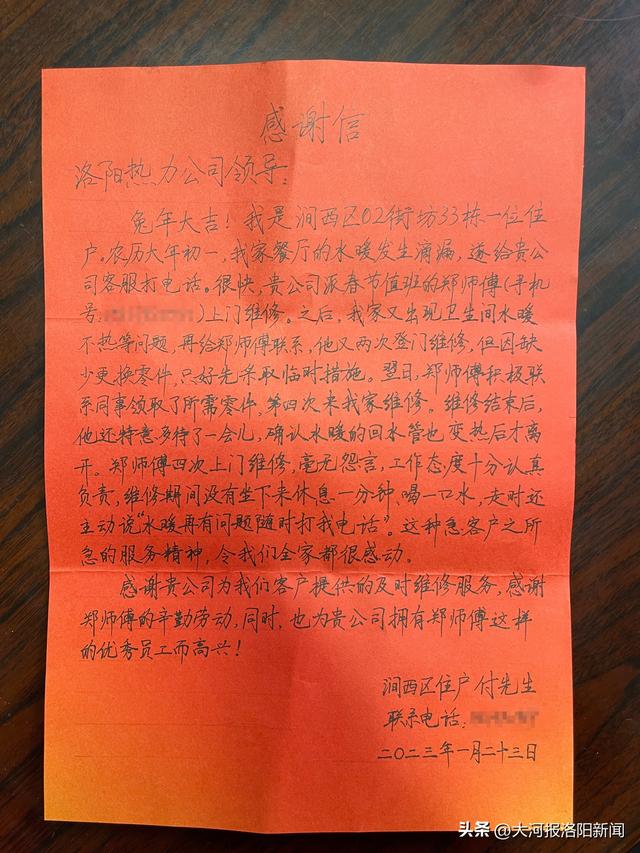 感谢信
洛阳热力公司领导:
兔年大吉!我是涧西区02街坊33栋一位住
户。农历大年初一,我家餐厅的水暖发生滴漏,遂给贵公
司客服打电话。很快,贵公司派春节值班的郑师傅(手机
号: )上门维修。之后,我家又出现卫生间水暖
不热等问题,再给郑师傅联系,他又两次登门维修,但因缺
少更换零件,只好先采取临时措施。翌日,郑师傅积极联
系同事领取了所需零件,第四次来我家维修。维修结束后,
他还特意多待了一会儿,确认水暖的回水管也变热后才离
开。郑师傅四次上门维修,毫无怨言,工作态度十分认真
负责,维修期间没有坐下来休息一分钟、喝一口水,走时还
主动说“水暖再有问题随时打我电话”。这种急客户之所
急的服务精神,令我们全家都很感动。
感谢贵公司为我们客户提供的及时维修服务,感谢
郑师傅的辛勤劳动,同时,也为贵公司拥有郑师傅这样
的优秀员工而高兴!
涧西区住户付先生
联系电话:
二〇二三年一月二十三日
头条 @大河报洛阳新闻